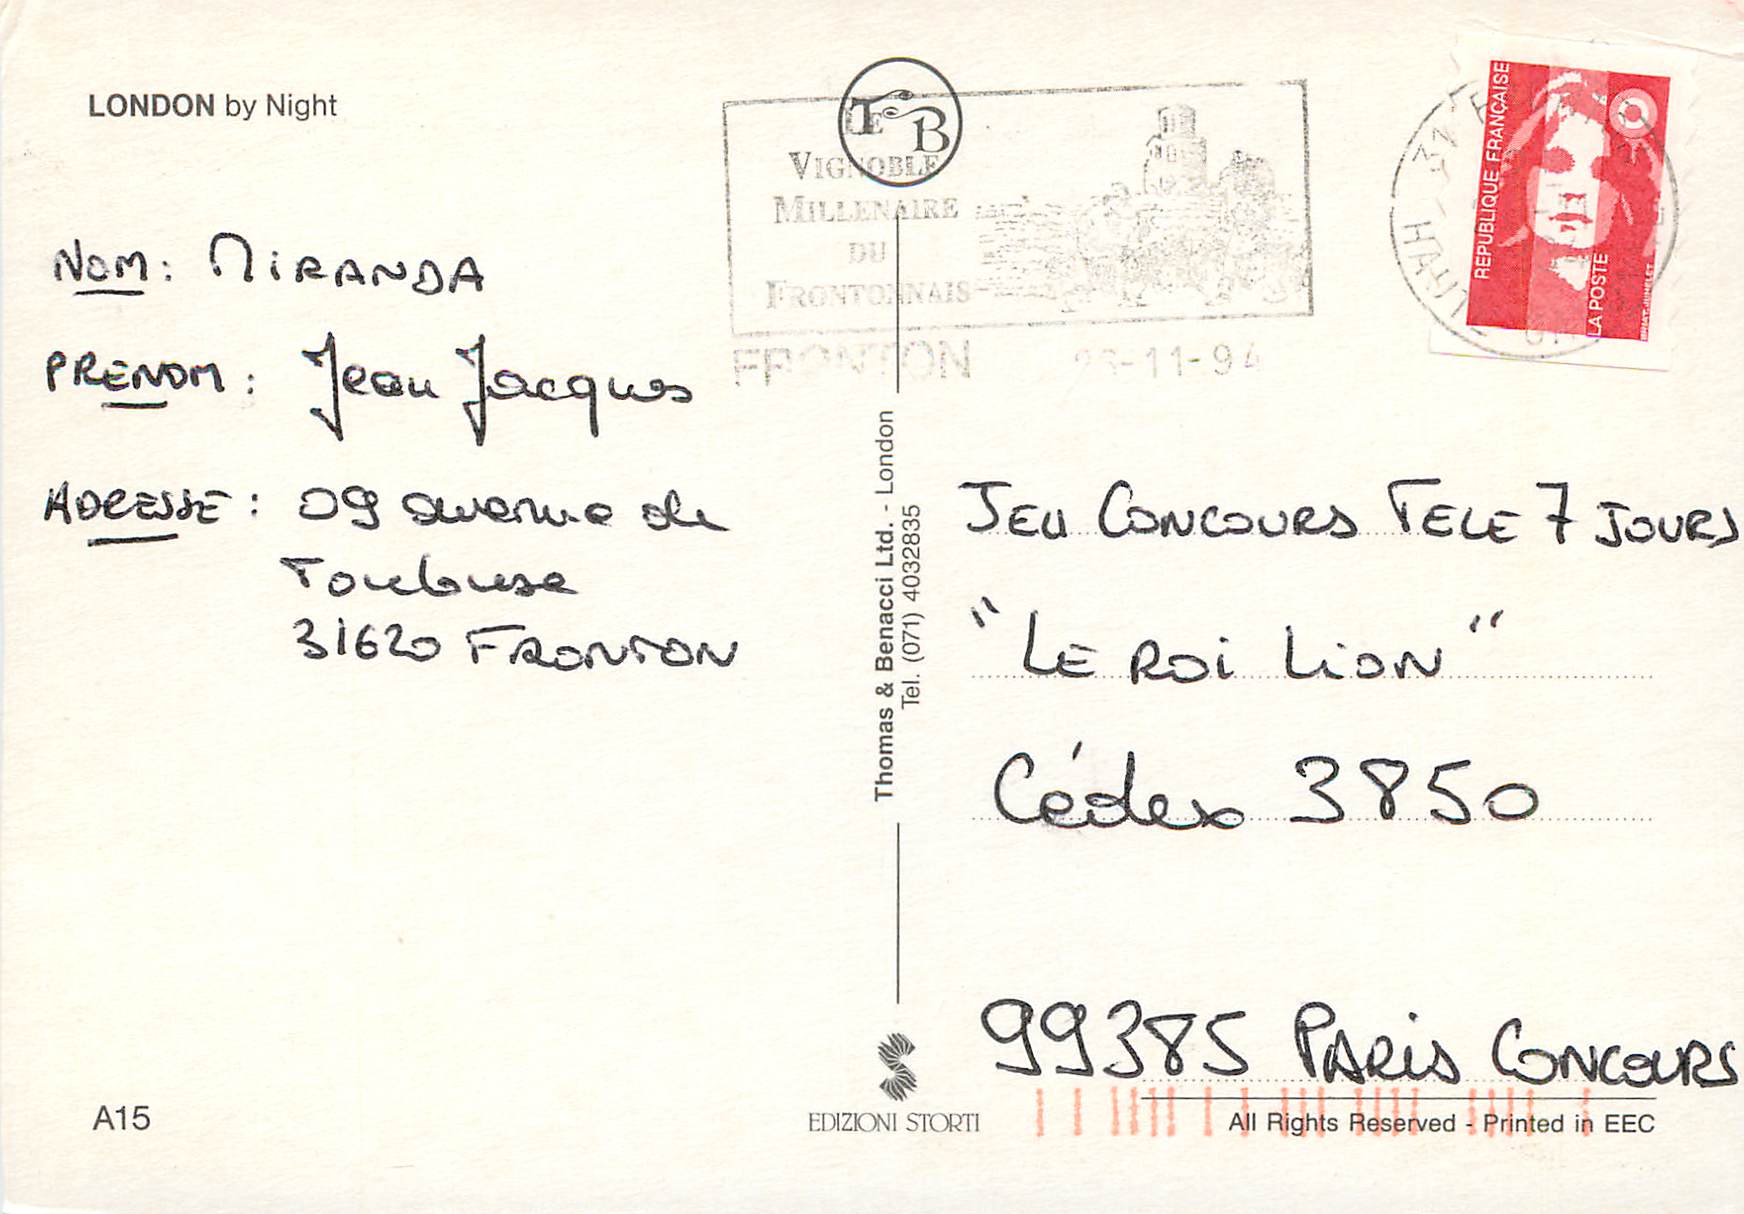 LONDON by Night
LE
VIGNOBLE
MILLENAIRE
DU
FRONTONNAIS
FRONTON -11-94
TB
REPUBLIQUE FRANÇAISE
LA POSTE
31
HAUTE
NOM: MIRANDA
PRENOM: Jean Jacques
ADRESSE: 09 avenue de
Toulouse
31620 FRONTON
Thomas & Benacci Ltd. - London
Tel. (071) 4032835
JEU CONCOURS TELE 7 JOURS
"LE ROI LION"
Cédex 3850
99385 PARIS CONCOURS
A15
EDIZIONI STORTI
All Rights Reserved - Printed in EEC